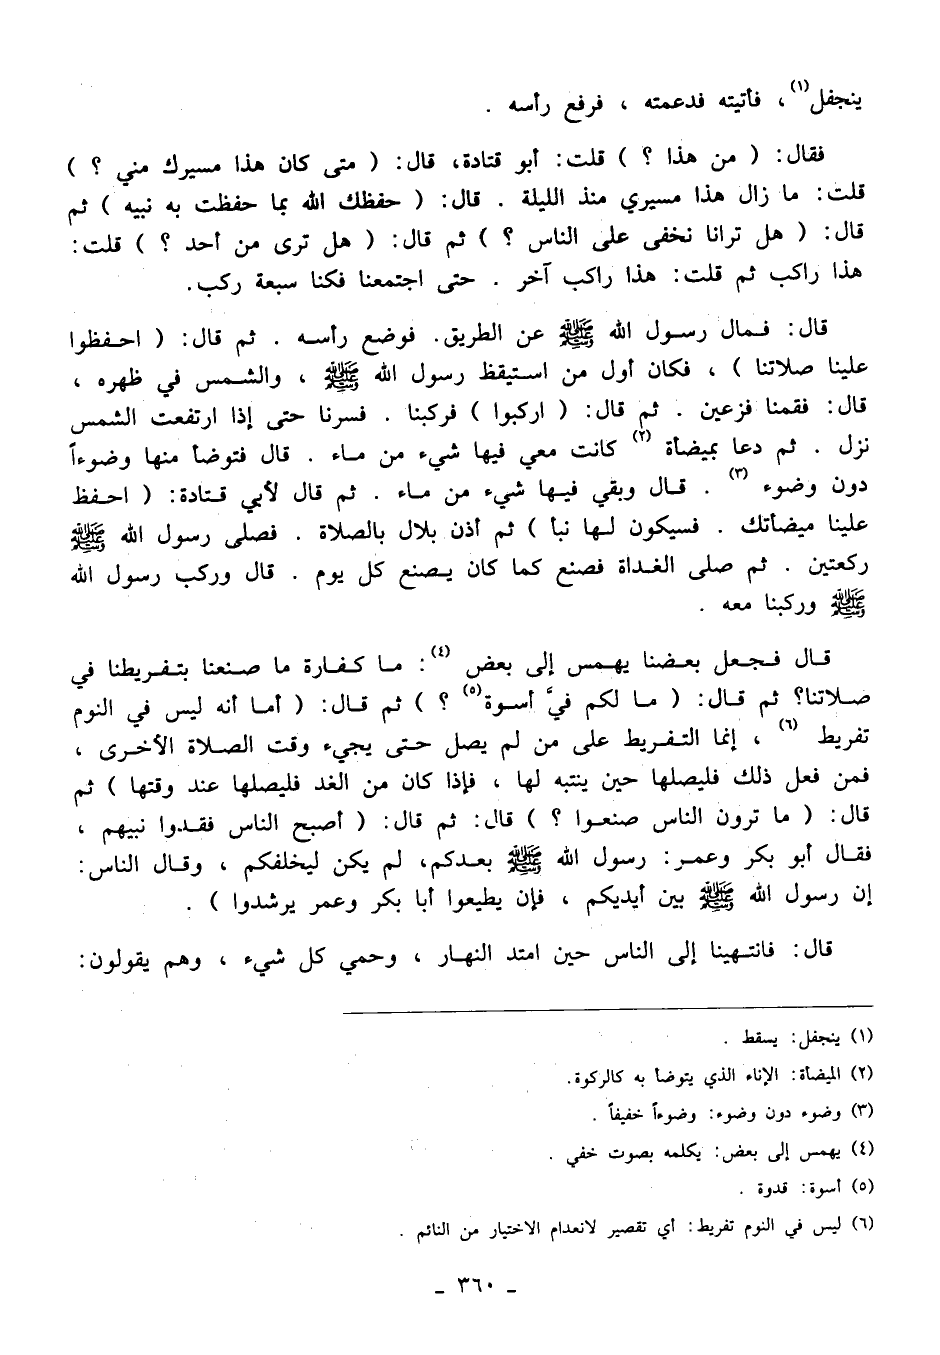 ينجفل(١)، فأتيته فدعمته ، فرفع رأسه .
فقال: ( من هذا ؟ ) قلت: أبو قتادة، قال: ( متى كان هذا مسيرك مني ؟ )
قلت: ما زال هذا مسيري منذ الليلة . قال: ( حفظك الله بما حفظت به نبيه ) ثم
قال: ( هل ترانا نخفى على الناس ؟ ) ثم قال: ( هل ترى من أحد ؟ ) قلت:
هذا راكب ثم قلت: هذا راكب آخر . حتى اجتمعنا فكنا سبعة ركب.
قال: فمال رسول الله ﷺ عن الطريق. فوضع رأسه . ثم قال: ( احفظوا
علينا صلاتنا ) ، فكان أول من استيقظ رسول الله ﷺ ، والشمس في ظهره ،
قال: فقمنا فزعين . ثم قال: ( اركبوا ) فركبنا . فسرنا حتى إذا ارتفعت الشمس
نزل . ثم دعا بميضأة (٢) كانت معي فيها شيء من ماء . قال فتوضأ منها وضوءاً
دون وضوء (٣) . قال وبقي فيها شيء من ماء . ثم قال لأبي قتادة: ( احفظ
علينا ميضأتك . فسيكون لها نبأ ) ثم أذن بلال بالصلاة . فصلى رسول الله ﷺ
ركعتين . ثم صلى الغداة فصنع كما كان يصنع كل يوم . قال وركب رسول الله
ﷺ وركبنا معه .
قال فجعل بعضنا يهمس إلى بعض (٤): ما كفارة ما صنعنا بتفريطنا في
صلاتنا؟ ثم قال: ( ما لكم فيَّ أسوة(٥) ؟ ) ثم قال: ( أما أنه ليس في النوم
تفريط (٦) ، إنما التفريط على من لم يصل حتى يجيء وقت الصلاة الأخرى ،
فمن فعل ذلك فليصلها حين ينتبه لها ، فإذا كان من الغد فليصلها عند وقتها ) ثم
قال: ( ما ترون الناس صنعوا ؟ ) قال: ثم قال: ( أصبح الناس فقدوا نبيهم ،
فقال أبو بكر وعمر: رسول الله ﷺ بعدكم، لم يكن ليخلفكم ، وقال الناس:
إن رسول الله ﷺ بين أيديكم ، فإن يطيعوا أبا بكر وعمر يرشدوا ) .
قال: فانتهينا إلى الناس حين امتد النهار ، وحمي كل شيء ، وهم يقولون:
(١) ينجفل: يسقط .
(٢) الميضأة: الإناء الذي يتوضأ به كالركوة.
(٣) وضوء دون وضوء: وضوءاً خفيفاً .
(٤) يهمس إلى بعض: يكلمه بصوت خفي .
(٥) أسوة: قدوة .
(٦) ليس في النوم تفريط: أي تقصير لانعدام الاختيار من النائم .
- ٣٦٠ -